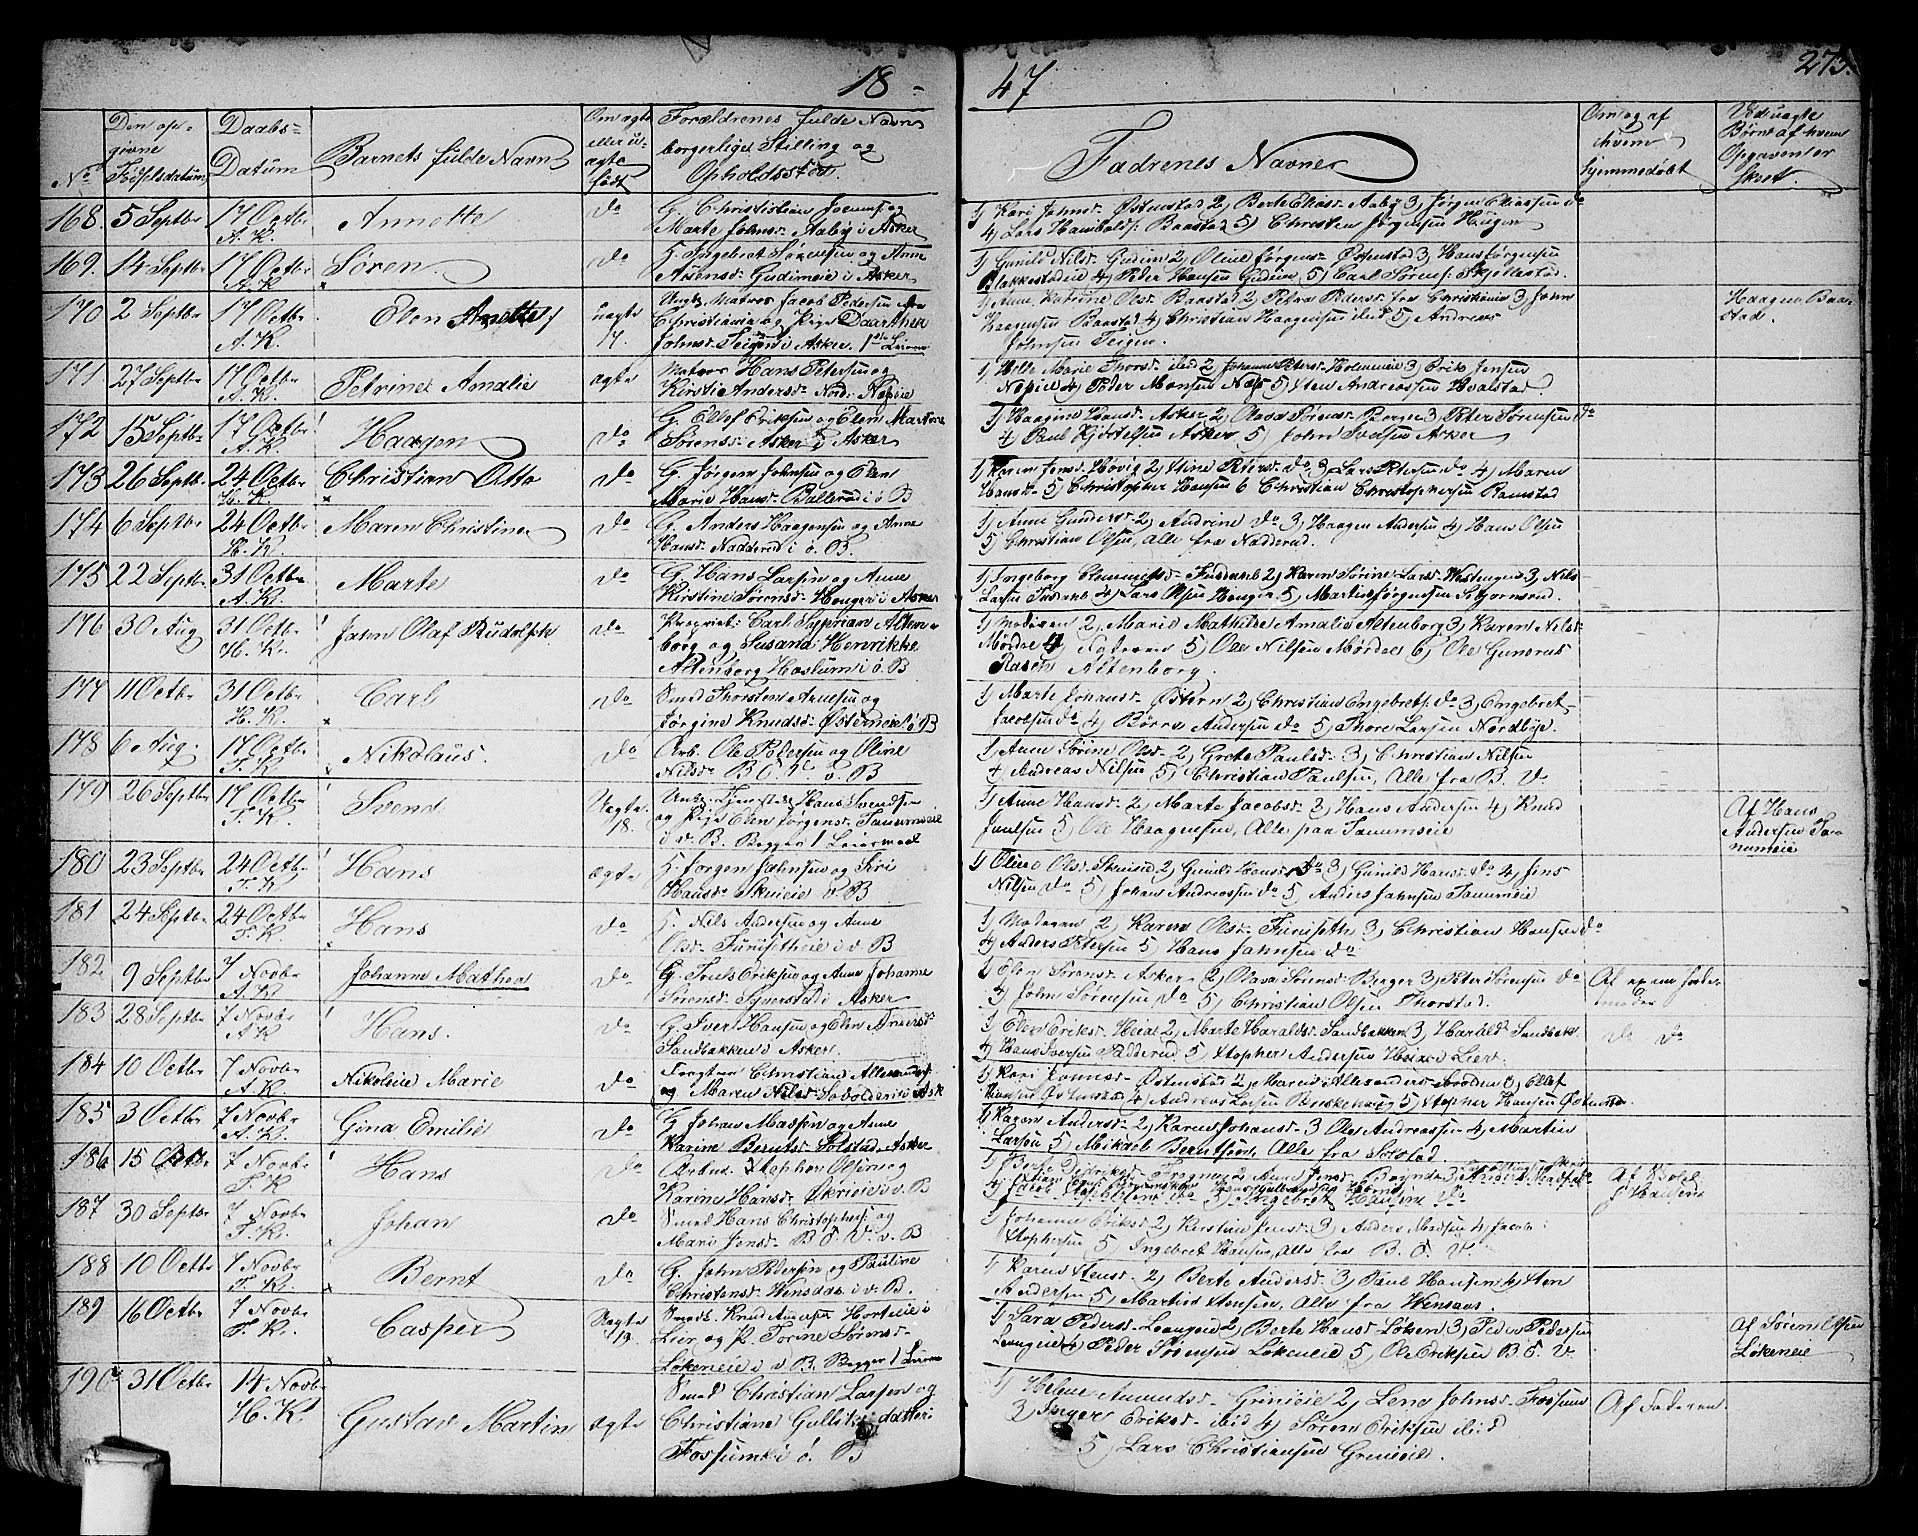 18 - 47
273.
No
Den op-
givne
Fødselsdatum
Daabs-
Datum
Barnets fulde Navn
Om ægte
eller u-
ægte
født
Forældrenes fulde Navne
borgerlige Stilling og
Opholdssted.
Faddrenes Navner
Om og af
hvem
hjemmedøbt
Ved uægte
Børn af hvem
Opgaven er
skeet.
168. 5 Septbr 17 Octbr Annette do G. Christistian Joenss. og
A. K. Marte Johnsd. Aaby i Asker
1) Kari Jahnsd. Østenstad 2) Berte Eliasd. Aaby 3) Jørgen Eliassen do
4) Lars Hamboldss. Baastad 5) Christen Jørgensen Haugen
169. 14 Septbr 17 Octbr Søren do H. Ingebret Sørensen og Anne
A. K. Asensd. Gudimeie i Asker
1) Gunild Nilsd. Gudim 2) Oline Jørgensd. Østenstad 3) Hans Jørgensen
Blakkestadeie 4) Peder Hansen Gudim 5) Carl Sørens. Skjøllestad.
170 2 Septbr 17 Octbr Elen Anette uægte Ungk. Matros Jacob Pedersen fra
A. K. 17. Christiania og Pige Daarthea
Johnsd. Teigen i Asker. 1ste Leierm.
1) Anne Katrine Olsd. Baastad 2) Petra Pedersd. fra Christiania 3) John
Haagensen Baastad 4) Christian Haagensen ibid 5) Andreas
Johnsen Teigen.
Haagen Baa-
stad.
171 27 Septbr 17 Octbr Petrine Amalie ægte Matros Hans Petersen og
A. K. Kirstie Andersd. Nord: Næsøie
1) Helle Marie Thorsd. ibid 2) Johanne Petersd. Holmeneie 3) Erik Jensen
Næsøie 4) Peder Monsen Næs 5) Sten Andreassen Hvalstad
172 15 Septbr 17 Octbr Haagen do G. Ellef Eriksen og Elen Martine
A. K. Sørensd. Asker i Asker
1) Haagine Hansd. Asker 2) Olava Sørensd. Berger 3) Peter Sørensen do
4) Paul Kjøstelsen Asker 5) John Iverssen Asker
173 26 Septbr 24 Octbr Christian Otto do G. Jørgen Johnsen og Elen
H. K. Marie Hansd. Ballerud i ø. B
1) Karen Jensd. Høvig 2) Stine Petersd. do 3) Lars Petersen do 4) Maren
Hansd. 5) Christopher Hansen 6 Christian Christophersen Ramstad
174 6 Septbr 24 Octbr Maren Christine do G. Anders Haagensen og Anne
H. K. Hansd. Nadderud i ø. B.
1) Anne Gundersd. 2) Andrine do 3) Haagen Andersen 4) Hans Olsen
5) Christian Olsen, Alle fra Nadderud.
175 22 Septbr 31 Octbr Marte do G. Hans Larsen og Anne
A. K. Kirstine Sørensd. Haugen i Asker
1) Ingeborg Clemmetsd. Fusdahl 2) Karen Sørine Larsd. Westengen 3) Nils
Larsen Fusdahl 4) Lars Olsen Haugen 5) Martin Jørgensen Bjørnerud.
176 30 Aug 31 Octbr Jahn Olaf Rudolph do Propriet: Carl Syprian Alten-
H. K. borg og Susana Henrikke
Altenborg Haslum i ø. B
1) Moderen 2) Marie Mathilde Amalie Altenborg 3) Karen Nilsd.
Mørdal 4) Faderen 5) Ole Nilsen Mørdal 6) Ole Gundersen
Altenborg.
177 11 Octbr 31 Octbr Carl do Smed Thorsten Arnesen og
H. K. Jørgine Knudsd. Østerneie i ø. B
1) Marte Johansd. Østern 2) Christian Engebrets. do 3) Engebret
Jacobsen do 4) Børre Andersen do 5) Thore Larsen Nordbye.
178 6 Aug. 17 Octbr Nikolaus. do Arb. Ole Pedersen og Oline
T. K. Nilsd. B. O. V. v. B
1) Anne Sørine Olsd. 2) Grete Paulsd. 3) Christian Nilsen
4) Andreas Nilsen 5) Christian Paulsen, Alle fra B. V.
179 26 Septbr 17 Octbr Svend Uægte. Ungk. Tjenestedr. Hans Svendsen
T. K. 18. og Pige Elen Jørgensd. Tanumseie
i v. B. Begges 1 Leiermaal
1) Anne Hansd. 2) Marte Jacobsd. 3) Hans Andersen 4) Knud
Paulsen 5) Ole Haagensen, Alle paa Tanumseie
Af Hans
Andersen Ta-
numseie
180 23 Septbr 24 Octbr Hans ægte H. Jørgen Jahnsen og Siri
T. K. Hansd. Skuieie v. B
1) Oliea Olsd. Skuieid 2) Gunild Hansd. do 3) Gunild Hansd. do 4) Jens
Nilsen do 5) Johan Andreassen do 5) Anders Jahnsen Tanumseie
181 24 Septbr 24 Octbr Hans do H. Nils Andersen og Anne
T. K Olsd. Furusetheie i v. B
1) Moderen 2) Karen Olsd. Furuseth 3) Christian Hansen do
4) Anders Petersen 5) Hans Jahnsen do
182 9 Septbr 7 Novbr Johanne Mathea do G. Truls Eriksen og Anne Johanne
A. K. Sørensd. Syverstad i Asker
1) Elen Sørensd. Asker 2) Olava Sørensd. Berger 3) Peter Sørensen do
4) John Sørensen do 5) Christian Olsen Thorstad.
183 28 Septbr 7 Novbr Hans. do G. Iver Hansen og Elen Andersd.
A K Sandbakken i Asker.
1) Elen Eriksd. Heia 2) Marte Haraldsd. Sandbakken 3) Harald Sandbak.
4) Hans Iversen Padderud 5) Stopher Andersen Heia i Lier.
do do
184 10 Octbr 7 Novbr Nikoleie Marie do Christian Allexanders.
A. K. og Maren Nilsd. i Ask
1) Kari Jahnsd. Østenstad 2) Maren Allexandersd. 3) Ellef
Hansen Østenstad 4) Andreas Larsen 5) Stopher Hansen Østenstad.
185 3 Octbr 7 Novbr Gina Emilie do G Johan Massen og Anne
A. K. Karine Berntsd. Solstad i Asker
1) Karen Andersd. 2) Karen Johansd. 3 Ole Andreassen 4) Martin
Larsen 5) Mikael Berntsen, Alle fra Solstad.
186 15 Octbr 7 Novbr Hans do Arbmd. Stopher Olsen og
T. K. Karine Hansd. Økrieie i v. B
Af
Hansen
187 30 Septbr 7 Novbr Johan do Smed Hans Christophers. og
T. K. Mari Jensd. B. O. V. v. B
1) Johanne Eriksd. 2) Kerstine Jensd. 3) Anders Madsen 4) Jacob
Stophersen 5) Ingebret Hansen, Alle fra B. O. V.
188 10 Octbr 7 Novbr Bernt do G. John Pedersen og Pauline
T. K. Christensd. Wensaas i v. B.
1) Karen Stensd. 2) Berte Andersd. 3) Paul Hansen 4) Sten
Andersen 5) Martin Stensen, Alle fra Wensaas.
189 16 Octbr 7 Novbr Casper Uægte Smeds. Knud Amundsen Horteleie i
T. K. 19. Lier og P. Torine Sørensd.
Løkeneie i v. B. Begges 1 Leierm
1) Sara Pedersd. Leangeid 2) Berte Hansd. Løken 3) Peder Pedersen
Leangeie 4) Peder Sørensen Løkeneie 5) Ole Eriksen B. O. V
Af Søren Olsen
Løkeneie
190 31 Octbr 14 Novbr Gustav Martin ægte Smed Christian Larsen og
H. K. Christiane Gulliksdatter i
Fossumeie i ø. B
1) Helene Amundsd. Grinieie 2) Lena Johnsd. Fossum
3) Inger Eriksd. ibid 4) Søren Eriksen ibid
5) Lars Christiansen Grinieie.
Af Faderen.